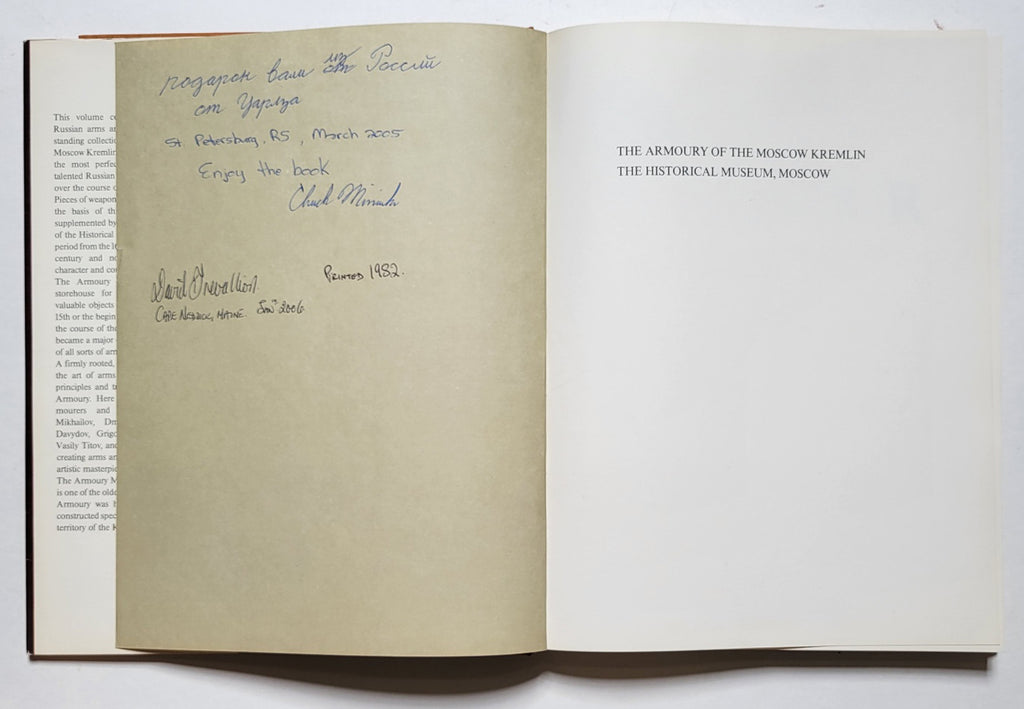 This volume
Russian arms
standing collecti
Moscow Kremlin
the most perfe
talented Russian
over the course
Pieces of weapon
the basis of th
supplemented by
of the Historical
period from the
century and
character and
The Armoury
storehouse for
valuable objects
15th or the begin
the course of the
became a major
of all sorts of
A firmly rooted,
the art of arms
principles and
Armoury. Here
mourers and
Mikhailov,
Davydov,
Vasily Titov,
creating arms
artistic
The Armoury
is one of the
Armoury was
constructed
territory of the
подарок вам из России
от Чарлза
St. Petersburg, RS, March 2005
Enjoy the book
Chuck
PRINTED 1982.
David
CAPE NEDDICK, MAINE. JANY 2006
THE ARMOURY OF THE MOSCOW KREMLIN
THE HISTORICAL MUSEUM, MOSCOW